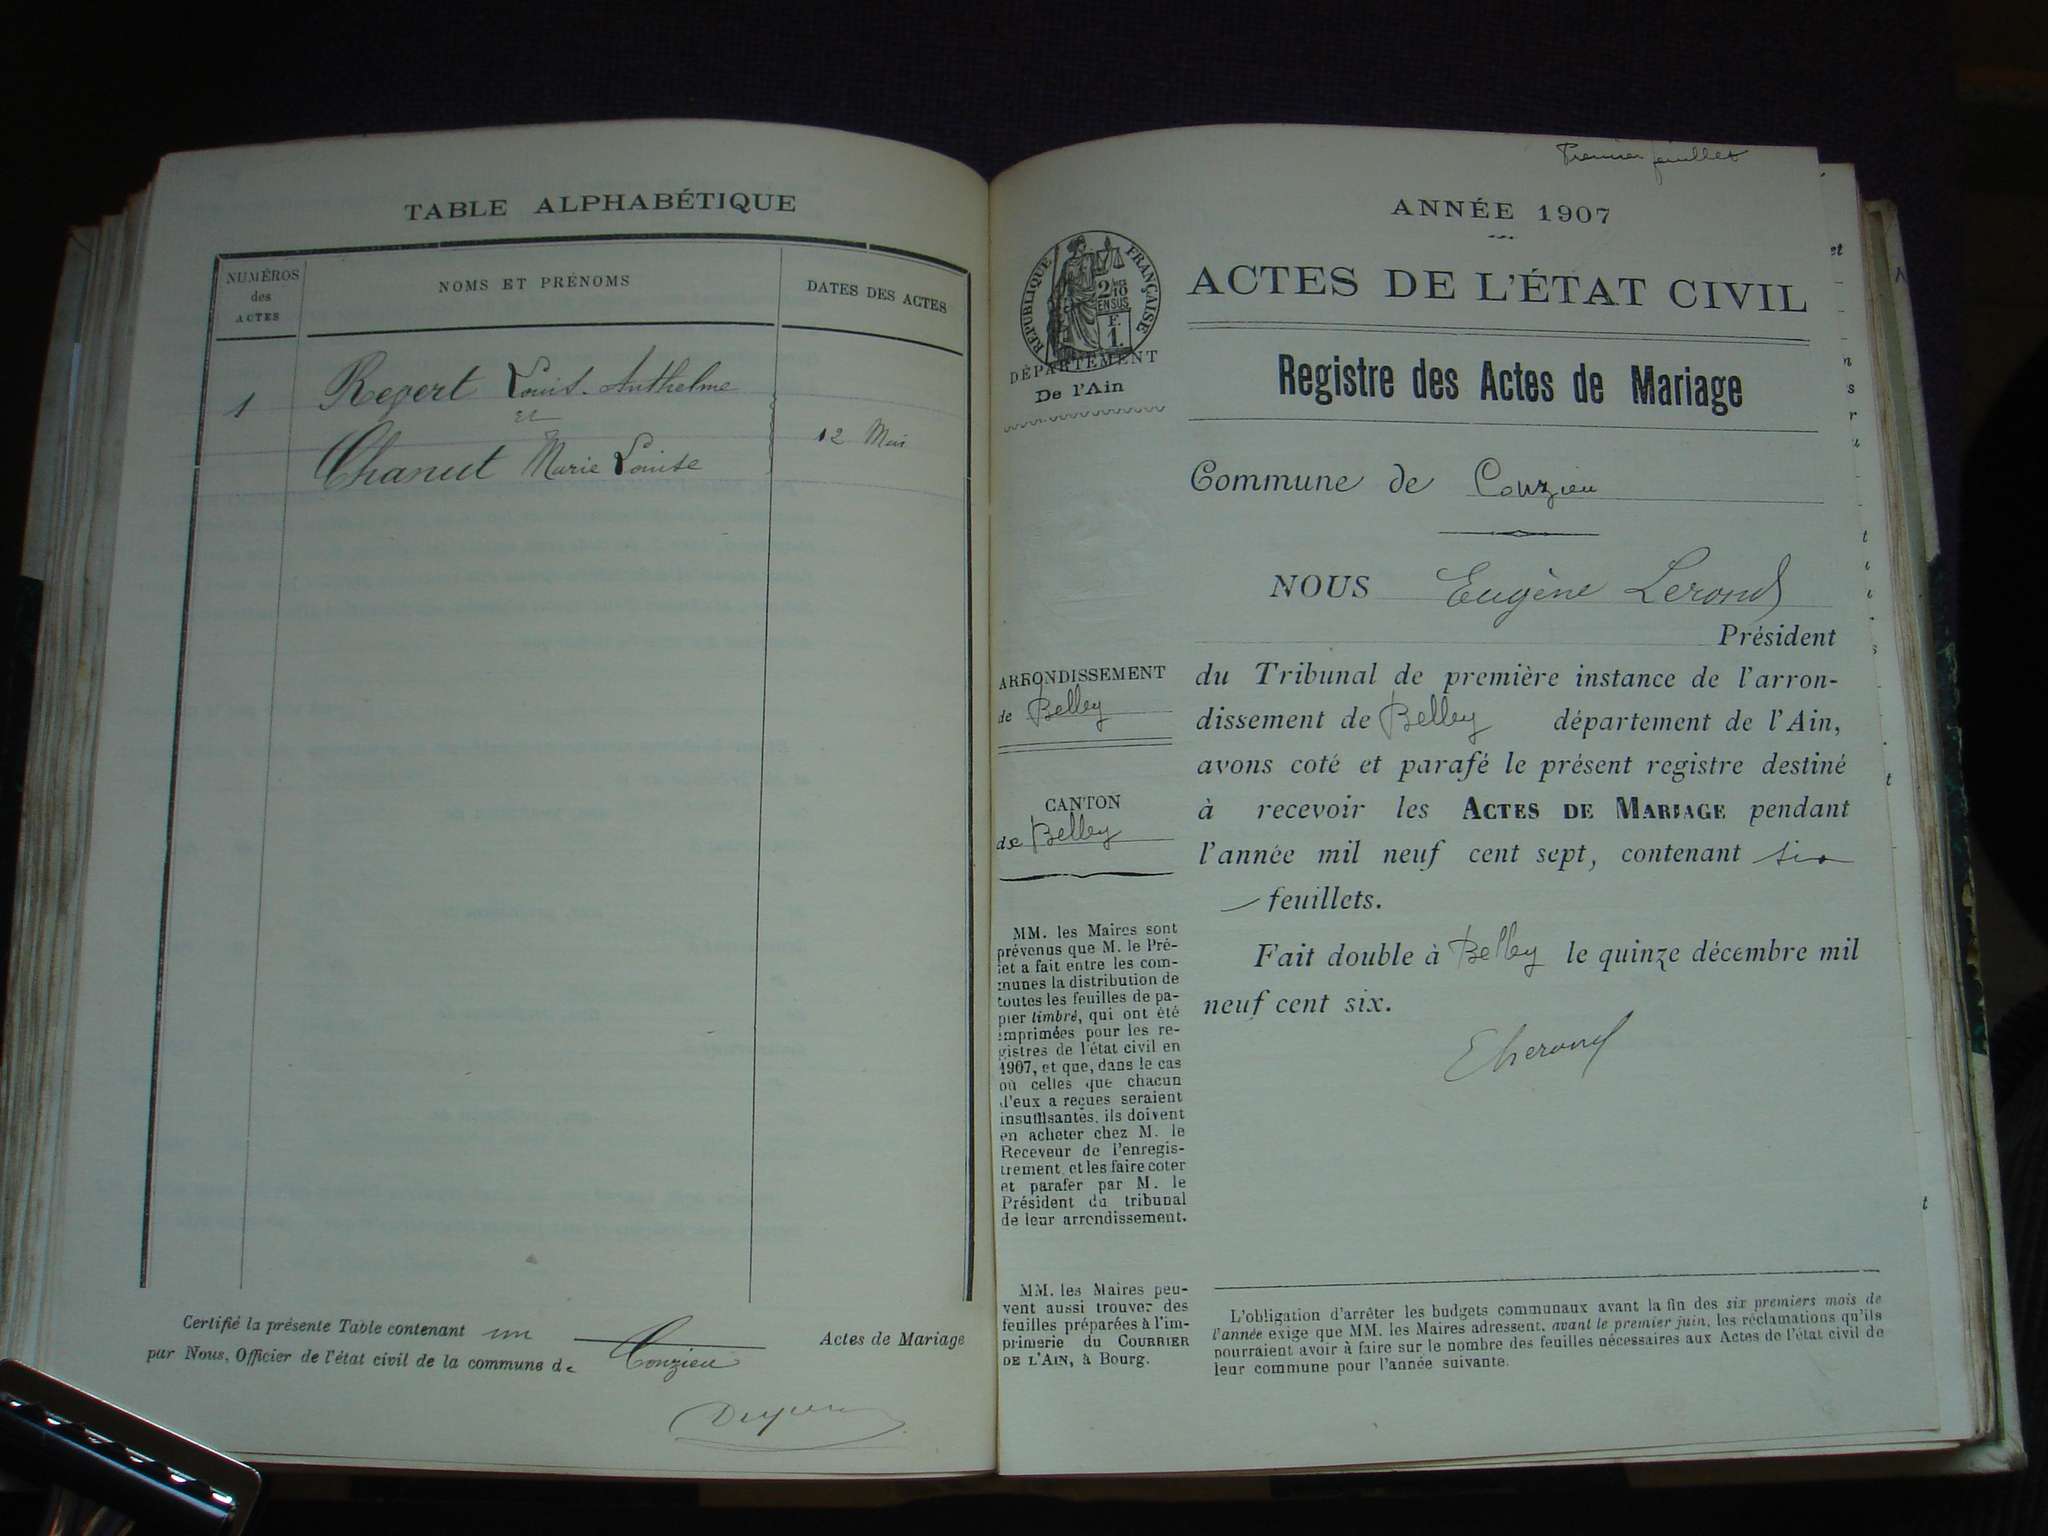 TABLE ALPHABÉTIQUE
NUMÉROS des ACTES
NOMS ET PRÉNOMS
DATES DES ACTES
1
Regert Louis-Anthelme
et
Chanut Marie Louise
12 Mai
Certifié la présente Table contenant un Actes de Mariage
par Nous, Officier de l'état civil de la commune de Conzieu
Premier feuillet
ANNÉE 1907
RÉPUBLIQUE FRANÇAISE
2/10 EN SUS
F. 1.
DÉPARTEMENT
De l'Ain
ACTES DE L'ÉTAT CIVIL
Registre des Actes de Mariage
Commune de Conzieu
NOUS Eugène Lerond
Président
du Tribunal de première instance de l'arron-
dissement de Belley département de l'Ain,
avons coté et parafé le présent registre destiné
à recevoir les ACTES DE MARIAGE pendant
l'année mil neuf cent sept, contenant six
feuillets.
Fait double à Belley le quinze décembre mil
neuf cent six.
ELerond
ARRONDISSEMENT
de Belley
CANTON
de Belley
MM. les Maires sont
prévenus que M. le Pré-
fet a fait entre les com-
munes la distribution de
toutes les feuilles de pa-
pier timbré, qui ont été
imprimées pour les re-
gistres de l'état civil en
1907, et que, dans le cas
où celles que chacun
d'eux a reçues seraient
insuffisantes, ils doivent
en acheter chez M. le
Receveur de l'enregis-
trement et les faire coter
et parafer par M. le
Président du tribunal
de leur arrondissement.
MM. les Maires peu-
vent aussi trouver des
feuilles préparées à l'im-
primerie du COURRIER
DE L'AIN, à Bourg.
L'obligation d'arrêter les budgets communaux avant la fin des six premiers mois de
l'année exige que MM. les Maires adressent, avant le premier juin, les réclamations qu'ils
pourraient avoir à faire sur le nombre des feuilles nécessaires aux Actes de l'état civil de
leur commune pour l'année suivante.